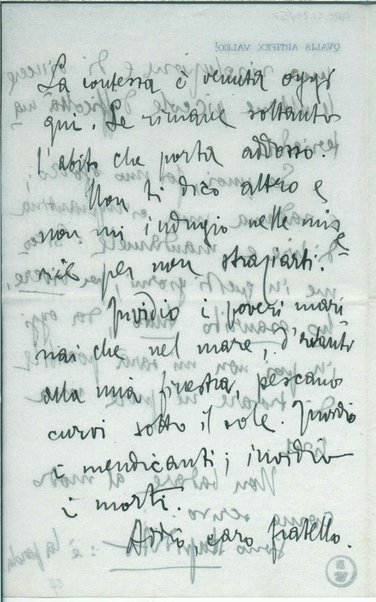 La contessa è venuta oggi
qui. Le rimane soltanto
l'abito che porta addosso.
Non ti dico altro e
non mi indugio nelle mise=
rie per non straziarti.
Invidio i poveri mari
nai che nel mare, d'avanti
alla mia finestra, pescano
curvi sotto il sole. Invidio
i mendicanti; invidio
i morti.
Addio, caro fratello.